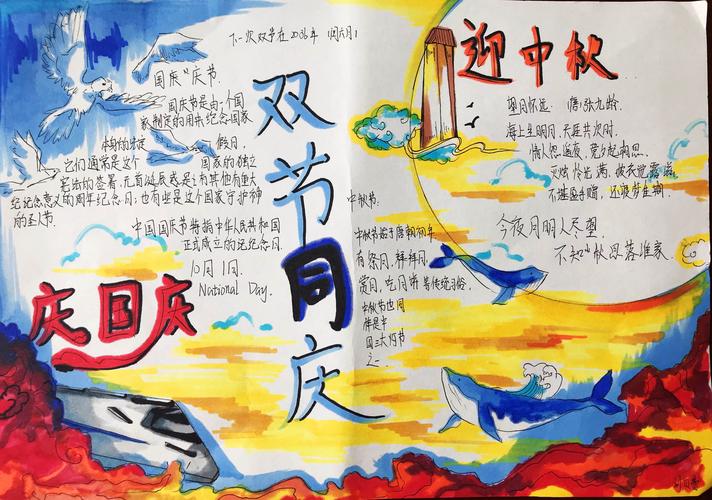 下一次双节在2036年
国庆"庆节.
国庆节是由一个国
家制定的用来纪念国家
本身的法定 假日.
它们通常是这个 国家的独立
宪法的签署,元首诞辰或是有其他有重大
纪念意义的周年纪念日,也有些是这个国家守护神
的圣人节.
中国国庆节特指中华人民共和国
正式成立的纪念日.
10月1日.
National Day.
庆国庆
双节同庆
迎中秋
望月怀远. 唐·张九龄.
海上生明月,天涯共此时.
情人怨遥夜,竟夕起相思.
灭烛怜光满,披衣觉露滋
不堪盈手赠,还寝梦佳期.
今夜月明人尽望
不知秋思落谁家.
中秋节.
中秋节始于唐朝初年
有祭月,拜月,
赏月,吃月饼等传统习俗.
中秋节也同
样是中
国三大灯节
之一.